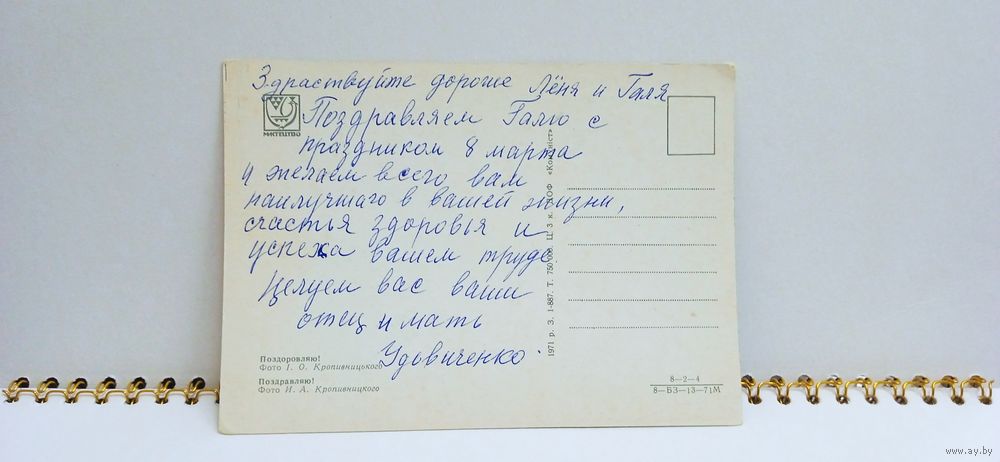 Здраствуйте дорогие Лёня и Галя
МИСТЕЦТВО
Поздравляем Галю с
праздником 8 марта
И желаем всего вам
наилучшаго в вашей жизни,
счастья здоровья и
успеха вашем труде
Целуем вас ваши
отец и мать
Удовиченко.
Поздоровляю!
Фото І. О. Кропивницького
Поздравляю!
Фото И. А. Кропивницкого
1971 р. З. 1-887. Т. 750 000. Ц. 3 к.
8—2—4
8—БЗ—13—71М
www.ay.by